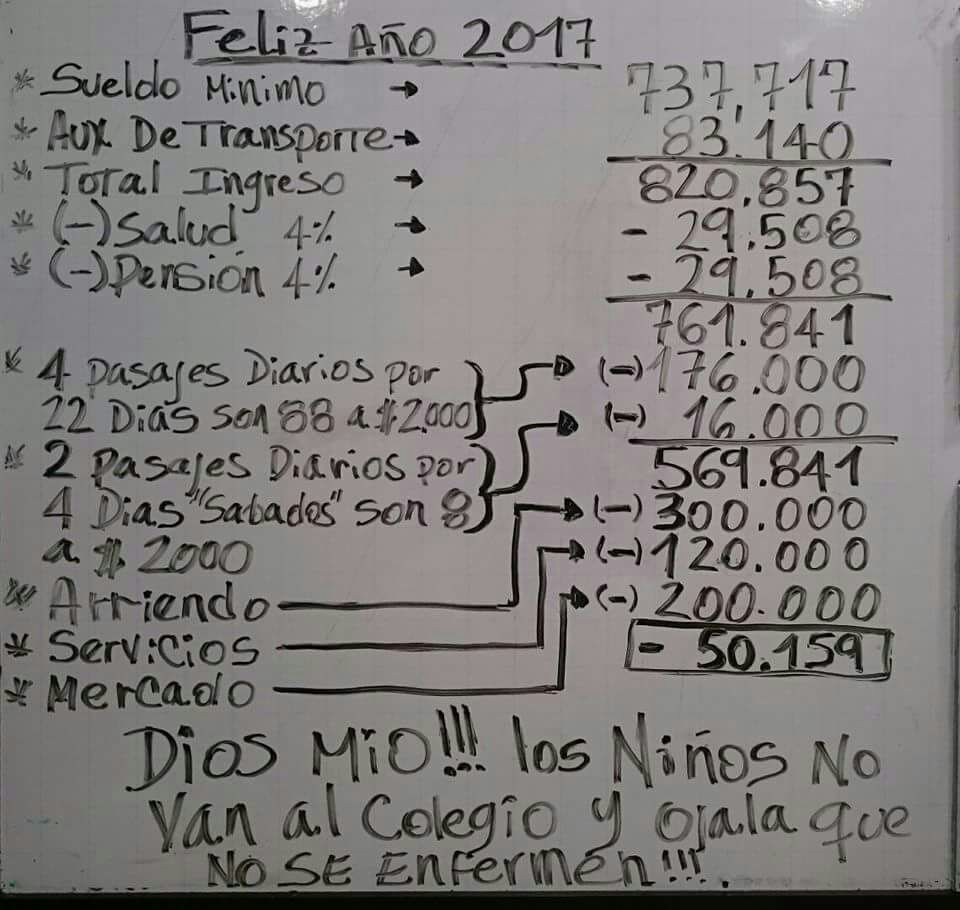 Feliz Año 2017
* Sueldo Minimo → 737,717
* Aux De Transporte → 83.140
* Total Ingreso → 820.857
* (-) Salud 4% → - 29.508
* (-) Pensión 4% → - 29.508
761.841
* 4 Pasajes Diarios por (-) 176.000
22 Dias son 88 a $2.000 (-) 16.000
* 2 Pasajes Diarios por 569.841
4 Dias "Sabados" son 8 (-) 300.000
a $ 2000 (-) 120.000
* Arriendo (-) 200.000
* Servicios - 50.159
* Mercado
Dios Mio!!! los Niños No
Van al Colegio y ojala que
No SE Enfermen!!!.